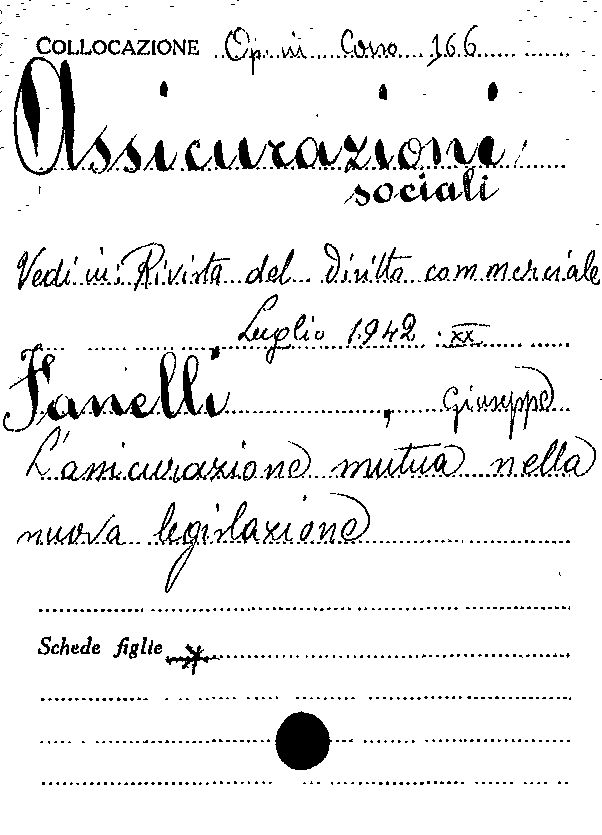 COLLOCAZIONE Op. in Corso 166
Assicurazioni
sociali
Vedi in: Rivista del Diritto commerciale
Luglio 1942 . XX
Fanelli , Giuseppe
L'assicurazione mutua nella
nuova legislazione
Schede figlie